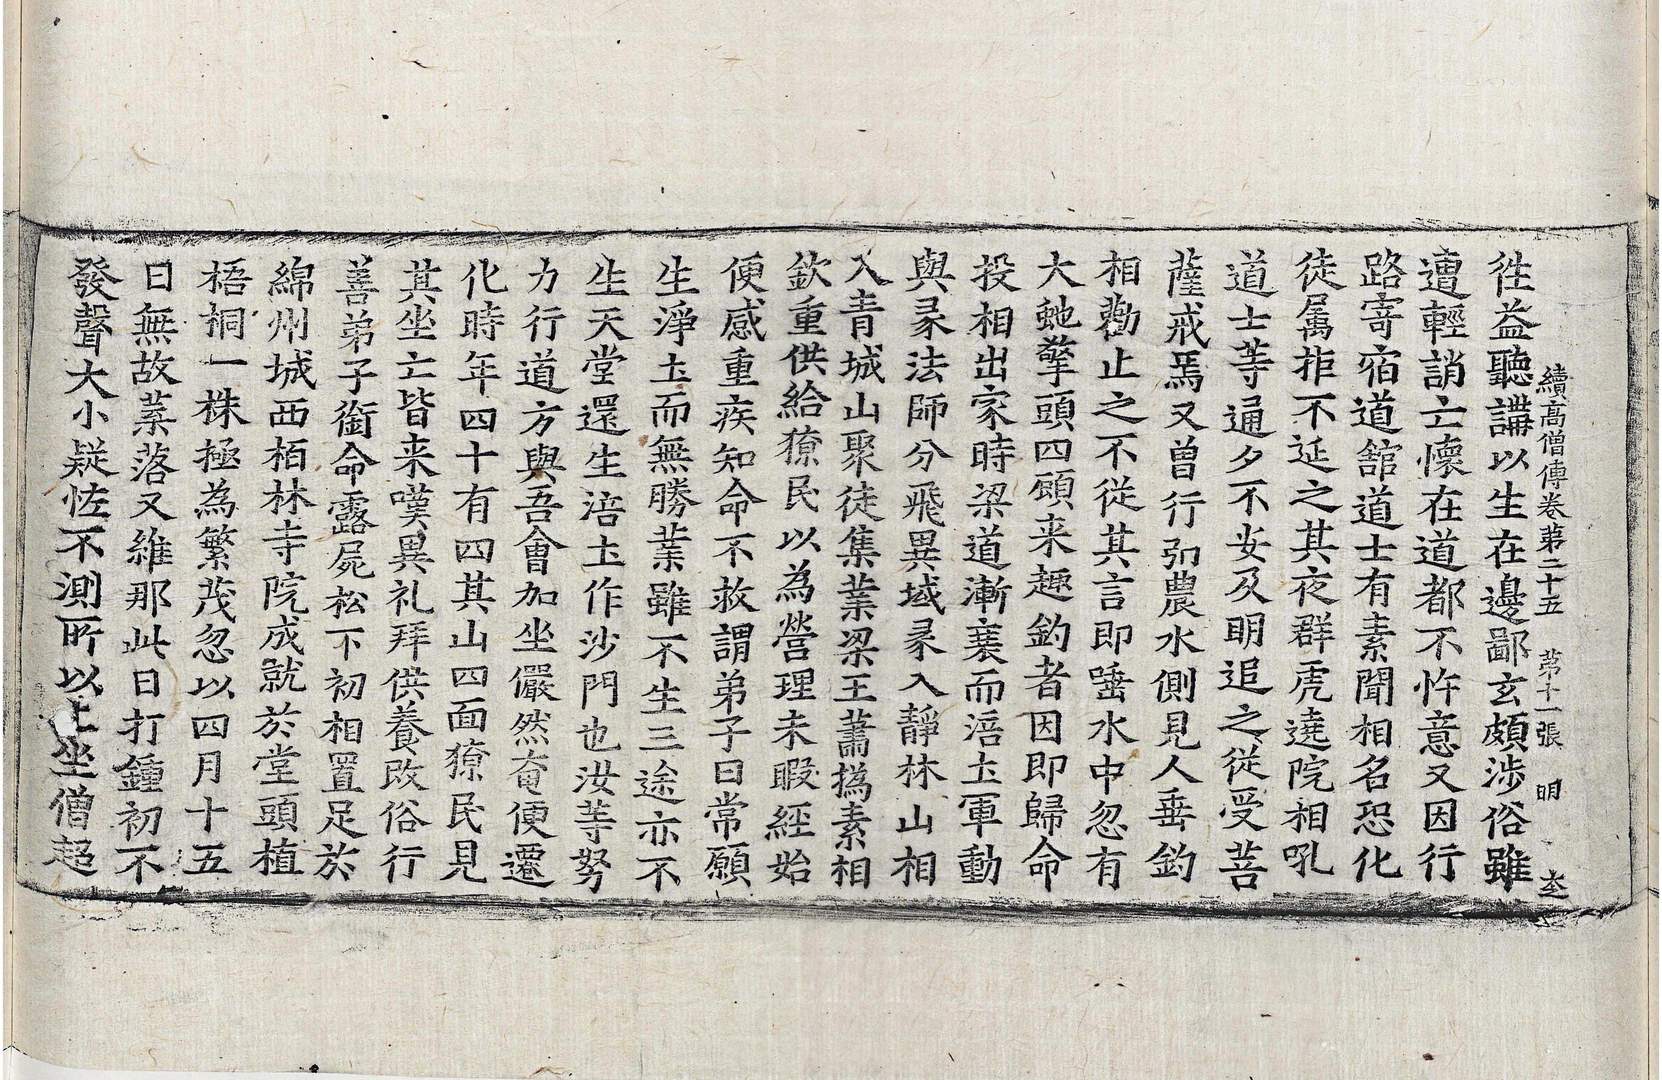 續高僧傳卷第二十五　第十一張　明
徃益聽講以生在邊鄙玄頗涉俗雖
遭輕誚亡懷在道都不忤意又因行
路寄宿道舘道士有素聞相名恐化
徒属拒不延之其夜群虎遶院相吼
道士等通夕不安及明追之從受菩
薩戒焉又曾行弘農水側見人垂釣
相勸止之不從其言即唾水中忽有
大虵擎頭四顧来趣釣者因即歸命
投相出家時梁道漸衰而涪土軍動
與㒸法師分飛異域㒸入靜林山相
入青城山聚徒集業梁王蕭撝素相
欽重供給獠民以為營理未暇經始
便感重疾知命不救謂弟子曰常願
生淨土而無勝業雖不生三途亦不
生天堂還生涪土作沙門也汝等努
力行道方與吾會加坐儼然奄便遷
化時年四十有四其山四面獠民見
其坐亡皆来嘆異礼拜供養改俗行
善弟子銜命露屍松下初相置足於
綿州城西栢林寺院成就於堂頭植
梧桐一株極為繁茂忽以四月十五
日無故葉落又維那此日打鍾初不
發聲大小疑怪不測所以上坐僧超